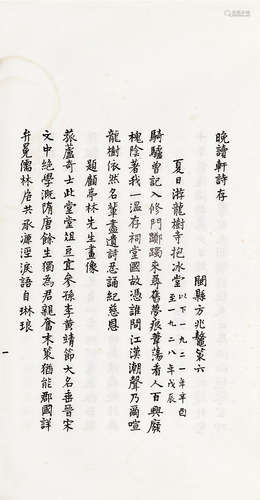 晚讀軒詩存
閩縣方兆鼇策六
夏日游龍樹寺抱冰堂 以下一九二一年辛酉至一九二八年戊辰
騎驢曾記入修門躑躅來尋舊夢痕葦蕩看人百興廢
槐陰著我一溫存祠堂國故憑誰問江漢潮聲乃爾喧
龍樹依然名輩盡遺詩忍誦紀慈恩
題顧亭林先生畫像
菰蘆奇士此堂堂俎豆宜參孫李黃靖節大名垂晉宋
文中絕學溉隋唐餘生獨為君親奮木策猶能郡國詳
弁冕儒林居共承濂涇淚語自琳琅
一